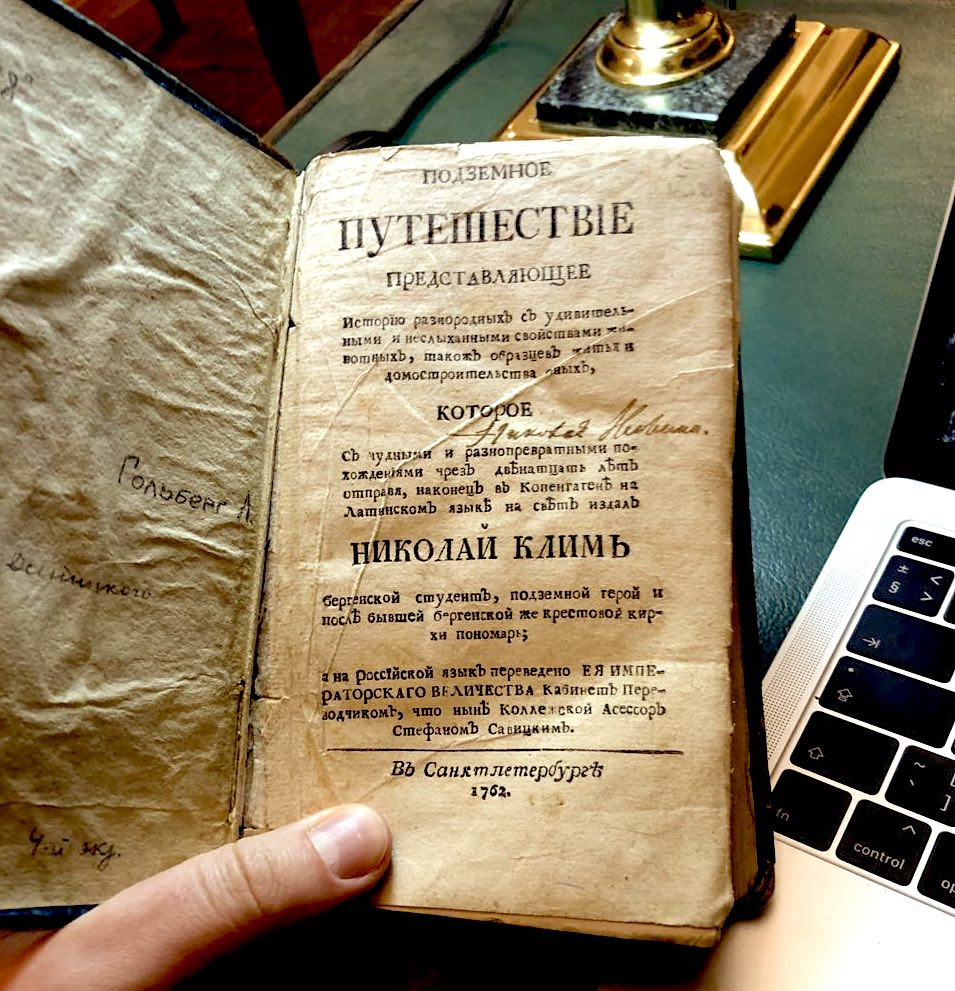 ПОДЗЕМНОЕ
ПУТЕШЕСТВІЕ
ПРЕДСТАВЛЯЮЩЕЕ
Исторїю разнородныхъ съ удивитель-
ными и неслыханными свойствами жи-
вотныхъ, такожъ образцевъ житья и
домостроительства оныхъ,
КОТОРОЕ
Николай
Съ чудными и разнопревратными по-
хожденїями чрезъ двѣнатцать лѣтъ
отправя, наконецъ въ Копенгагенѣ на
Латинскомъ языкѣ на свѣтъ издалъ
НИКОЛАЙ КЛИМЪ
бергенской студентъ, подземной герой и
послѣ бывшей бергенской же крестовой кир-
хи пономарь;
а на Россїйской языкъ переведено ЕЯ ИМПЕ-
РАТОРСКАГО ВЕЛИЧЕСТВА Кабинетъ Пере-
водчикомъ, что нынѣ Коллежской Асессоръ
Стефаномъ Савицкимъ.
Въ Санктпетербургѣ
1762.
Гольберг Л.
4-й экз.
esc
± §
< >
fn
control